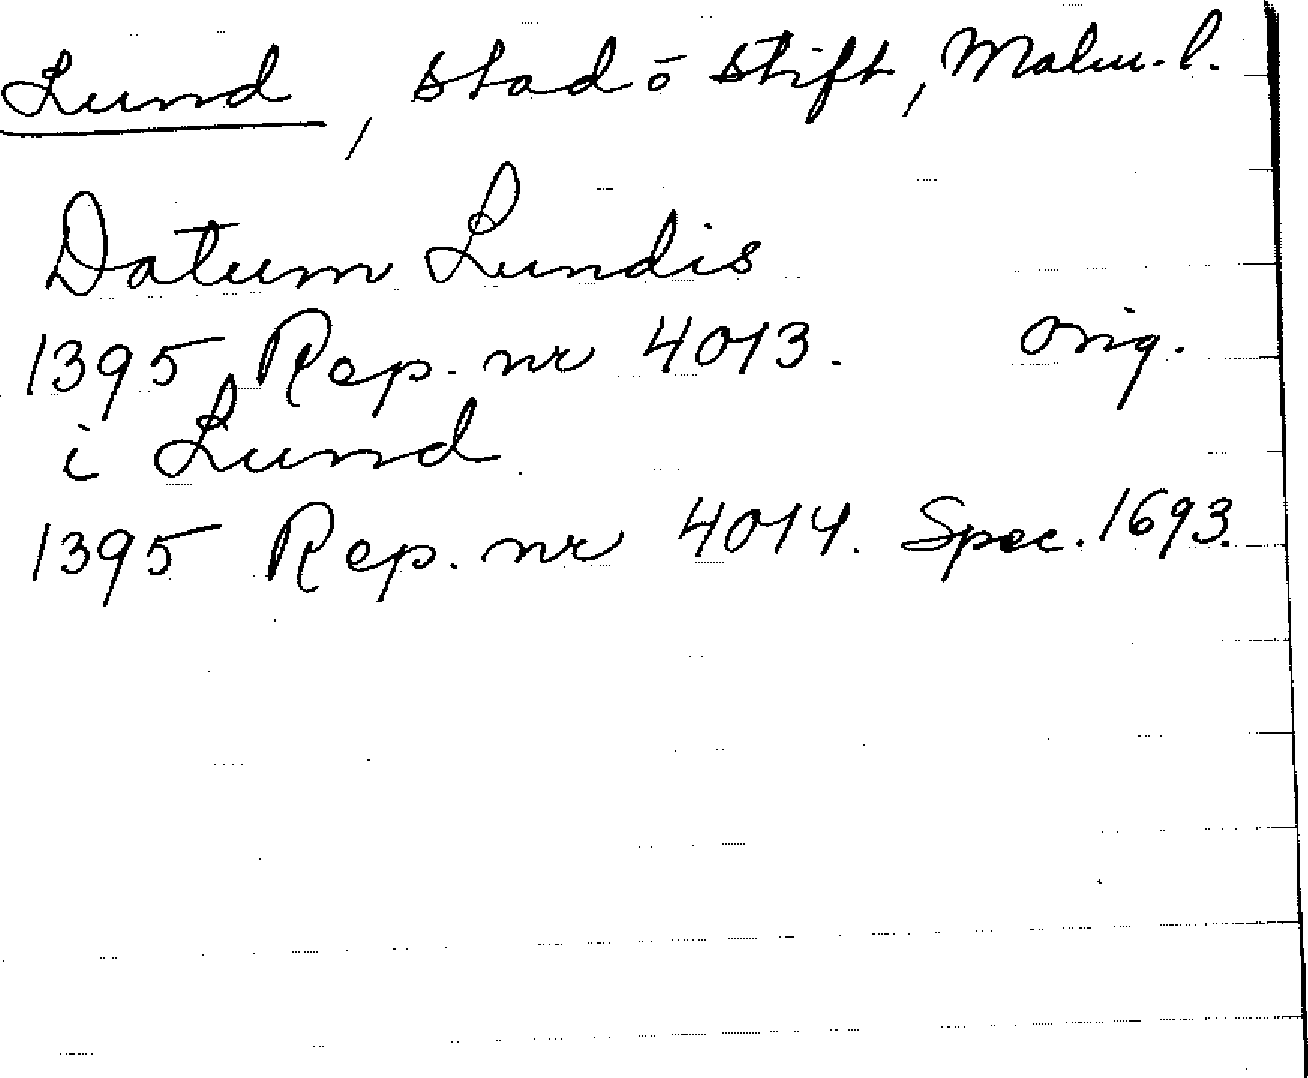 Lund, stad ō stift, Malm. l.
Datum Lundis
1395 Rep. nr 4013. orig.
i Lund
1395 Rep. nr 4014. Spec. 1693.